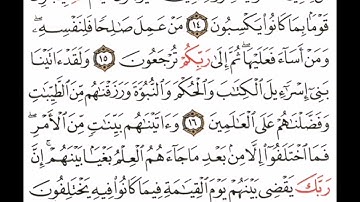 قَوْمًۢا بِمَا كَانُوا۟ يَكْسِبُونَ ١٤ مَنْ عَمِلَ صَـٰلِحًا فَلِنَفْسِهِۦ ۖ
وَمَنْ أَسَآءَ فَعَلَيْهَا ۖ ثُمَّ إِلَىٰ رَبِّكُمْ تُرْجَعُونَ ١٥ وَلَقَدْ ءَاتَيْنَا
بَنِىٓ إِسْرَٰٓءِيلَ ٱلْكِتَـٰبَ وَٱلْحُكْمَ وَٱلنُّبُوَّةَ وَرَزَقْنَـٰهُم مِّنَ ٱلطَّيِّبَـٰتِ
وَفَضَّلْنَـٰهُمْ عَلَى ٱلْعَـٰلَمِينَ ١٦ وَءَاتَيْنَـٰهُم بَيِّنَـٰتٍ مِّنَ ٱلْأَمْرِ ۖ
فَمَا ٱخْتَلَفُوٓا۟ إِلَّا مِنۢ بَعْدِ مَا جَآءَهُمُ ٱلْعِلْمُ بَغْيًۢا بَيْنَهُمْ ۚ إِنَّ
رَبَّكَ يَقْضِى بَيْنَهُمْ يَوْمَ ٱلْقِيَـٰمَةِ فِيمَا كَانُوا۟ فِيهِ يَخْتَلِفُونَ